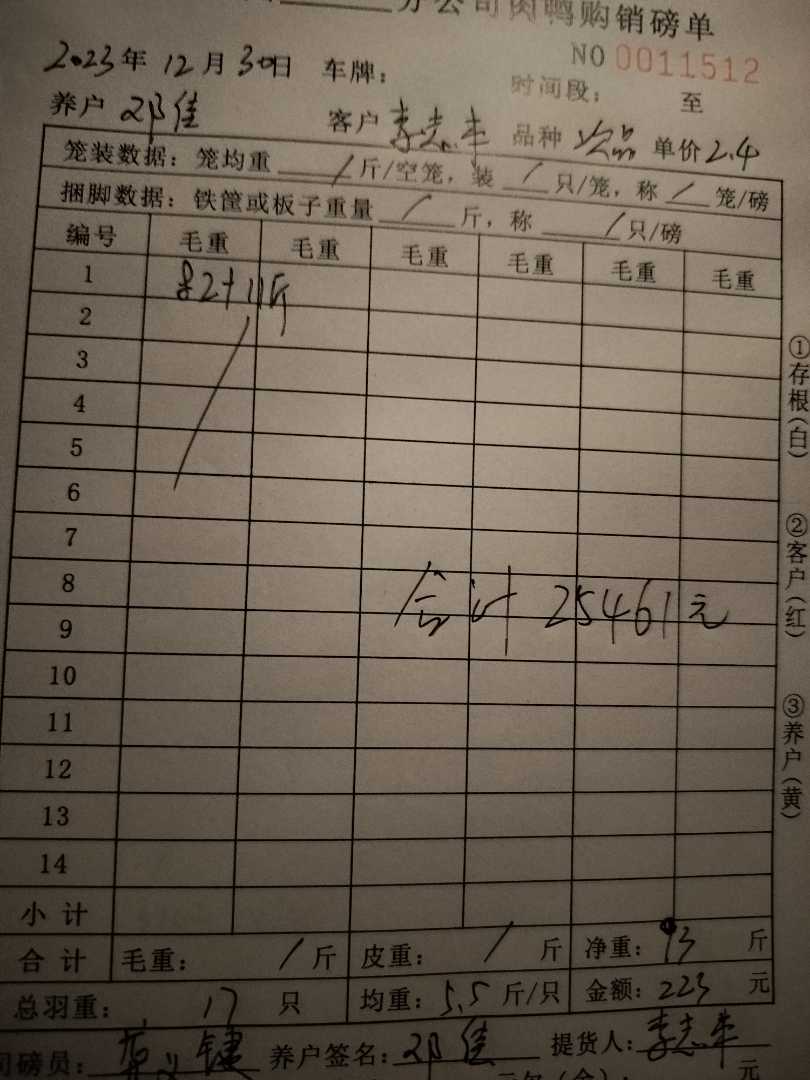 分公司肉鸭购销磅单
NO 0011512
2023年 12月 30日 车牌：
时间段： 至
养户 邓佳 客户 李志丰 品种 次品 单价 2.4
笼装数据：笼均重 / 斤/空笼，装 / 只/笼，称 / 笼/磅
捆脚数据：铁筐或板子重量 / 斤，称 / 只/磅
编号 毛重 毛重 毛重 毛重 毛重 毛重
1 82+11斤
2
3
4
5
6
7
8
合计 25461元
9
10
11
12
13
14
小计
合计 毛重： / 斤 皮重： / 斤 净重：93 斤
总羽重： 17 只 均重：5.5 斤/只 金额：223 元
司磅员： 养户签名：邓佳 提货人：李志丰
元
①存根(白)
②客户(红)
③养户(黄)